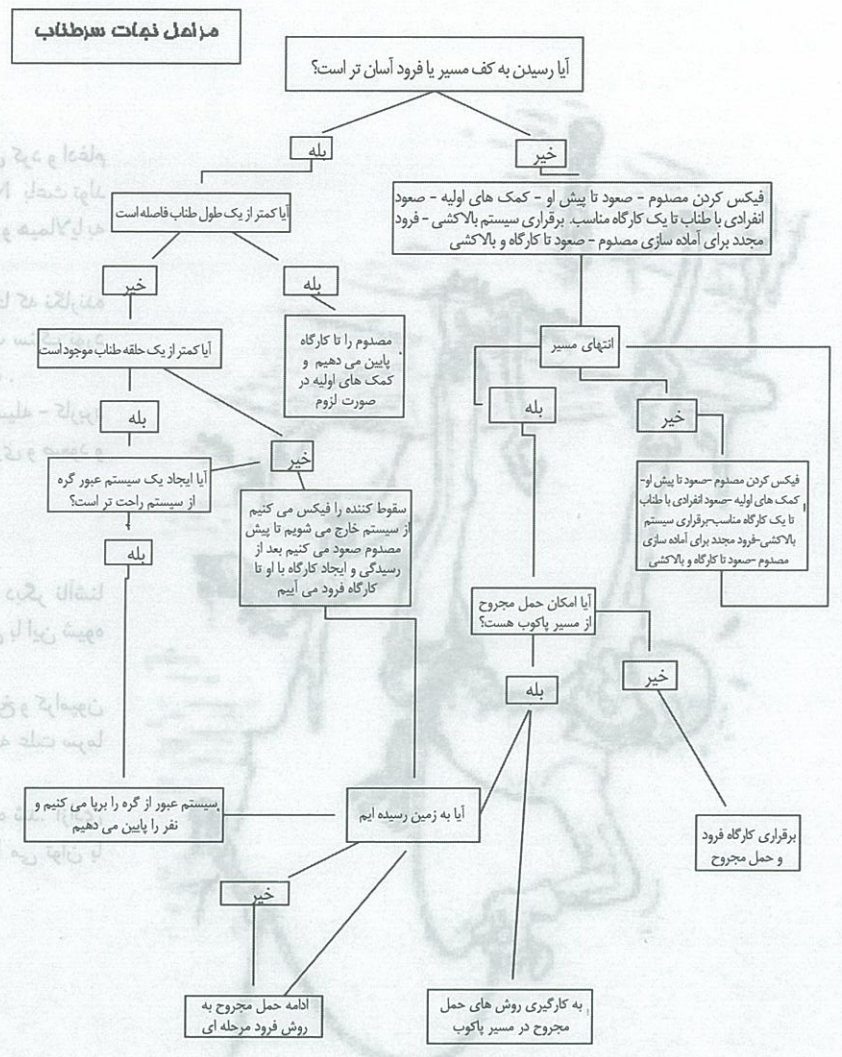 مراحل نجات سرطناب
آیا رسیدن به کف مسیر یا فرود آسان تر است؟
بله
خیر
آیا کمتر از یک طول طناب فاصله است
فیکس کردن مصدوم - صعود تا پیش او - کمک های اولیه - صعود
انفرادی با طناب تا یک کارگاه مناسب. برقراری سیستم بالاکشی - فرود
مجدد برای آماده سازی مصدوم - صعود تا کارگاه و بالاکشی
خیر
بله
آیا کمتر از یک حلقه طناب موجود است
مصدوم را تا کارگاه
پایین می دهیم و
کمک های اولیه در
صورت لزوم
انتهای مسیر
بله
خیر
بله
خیر
آیا ایجاد یک سیستم عبور گره
از سیستم راحت تر است؟
سقوط کننده را فیکس می کنیم
از سیستم خارج می شویم تا پیش
مصدوم صعود می کنیم بعد از
رسیدگی و ایجاد کارگاه با او تا
کارگاه فرود می آییم
فیکس کردن مصدوم -صعود تا پیش او-
کمک های اولیه -صعود انفرادی با طناب
تا یک کارگاه مناسب-برقراری سیستم
بالاکشی-فرود مجدد برای آماده سازی
مصدوم -صعود تا کارگاه و بالاکشی
بله
آیا امکان حمل مجروح
از مسیر پاکوب هست؟
بله
خیر
سیستم عبور از گره را برپا می کنیم و
نفر را پایین می دهیم
آیا به زمین رسیده ایم
برقراری کارگاه فرود
و حمل مجروح
خیر
ادامه حمل مجروح به
روش فرود مرحله ای
به کارگیری روش های حمل
مجروح در مسیر پاکوب